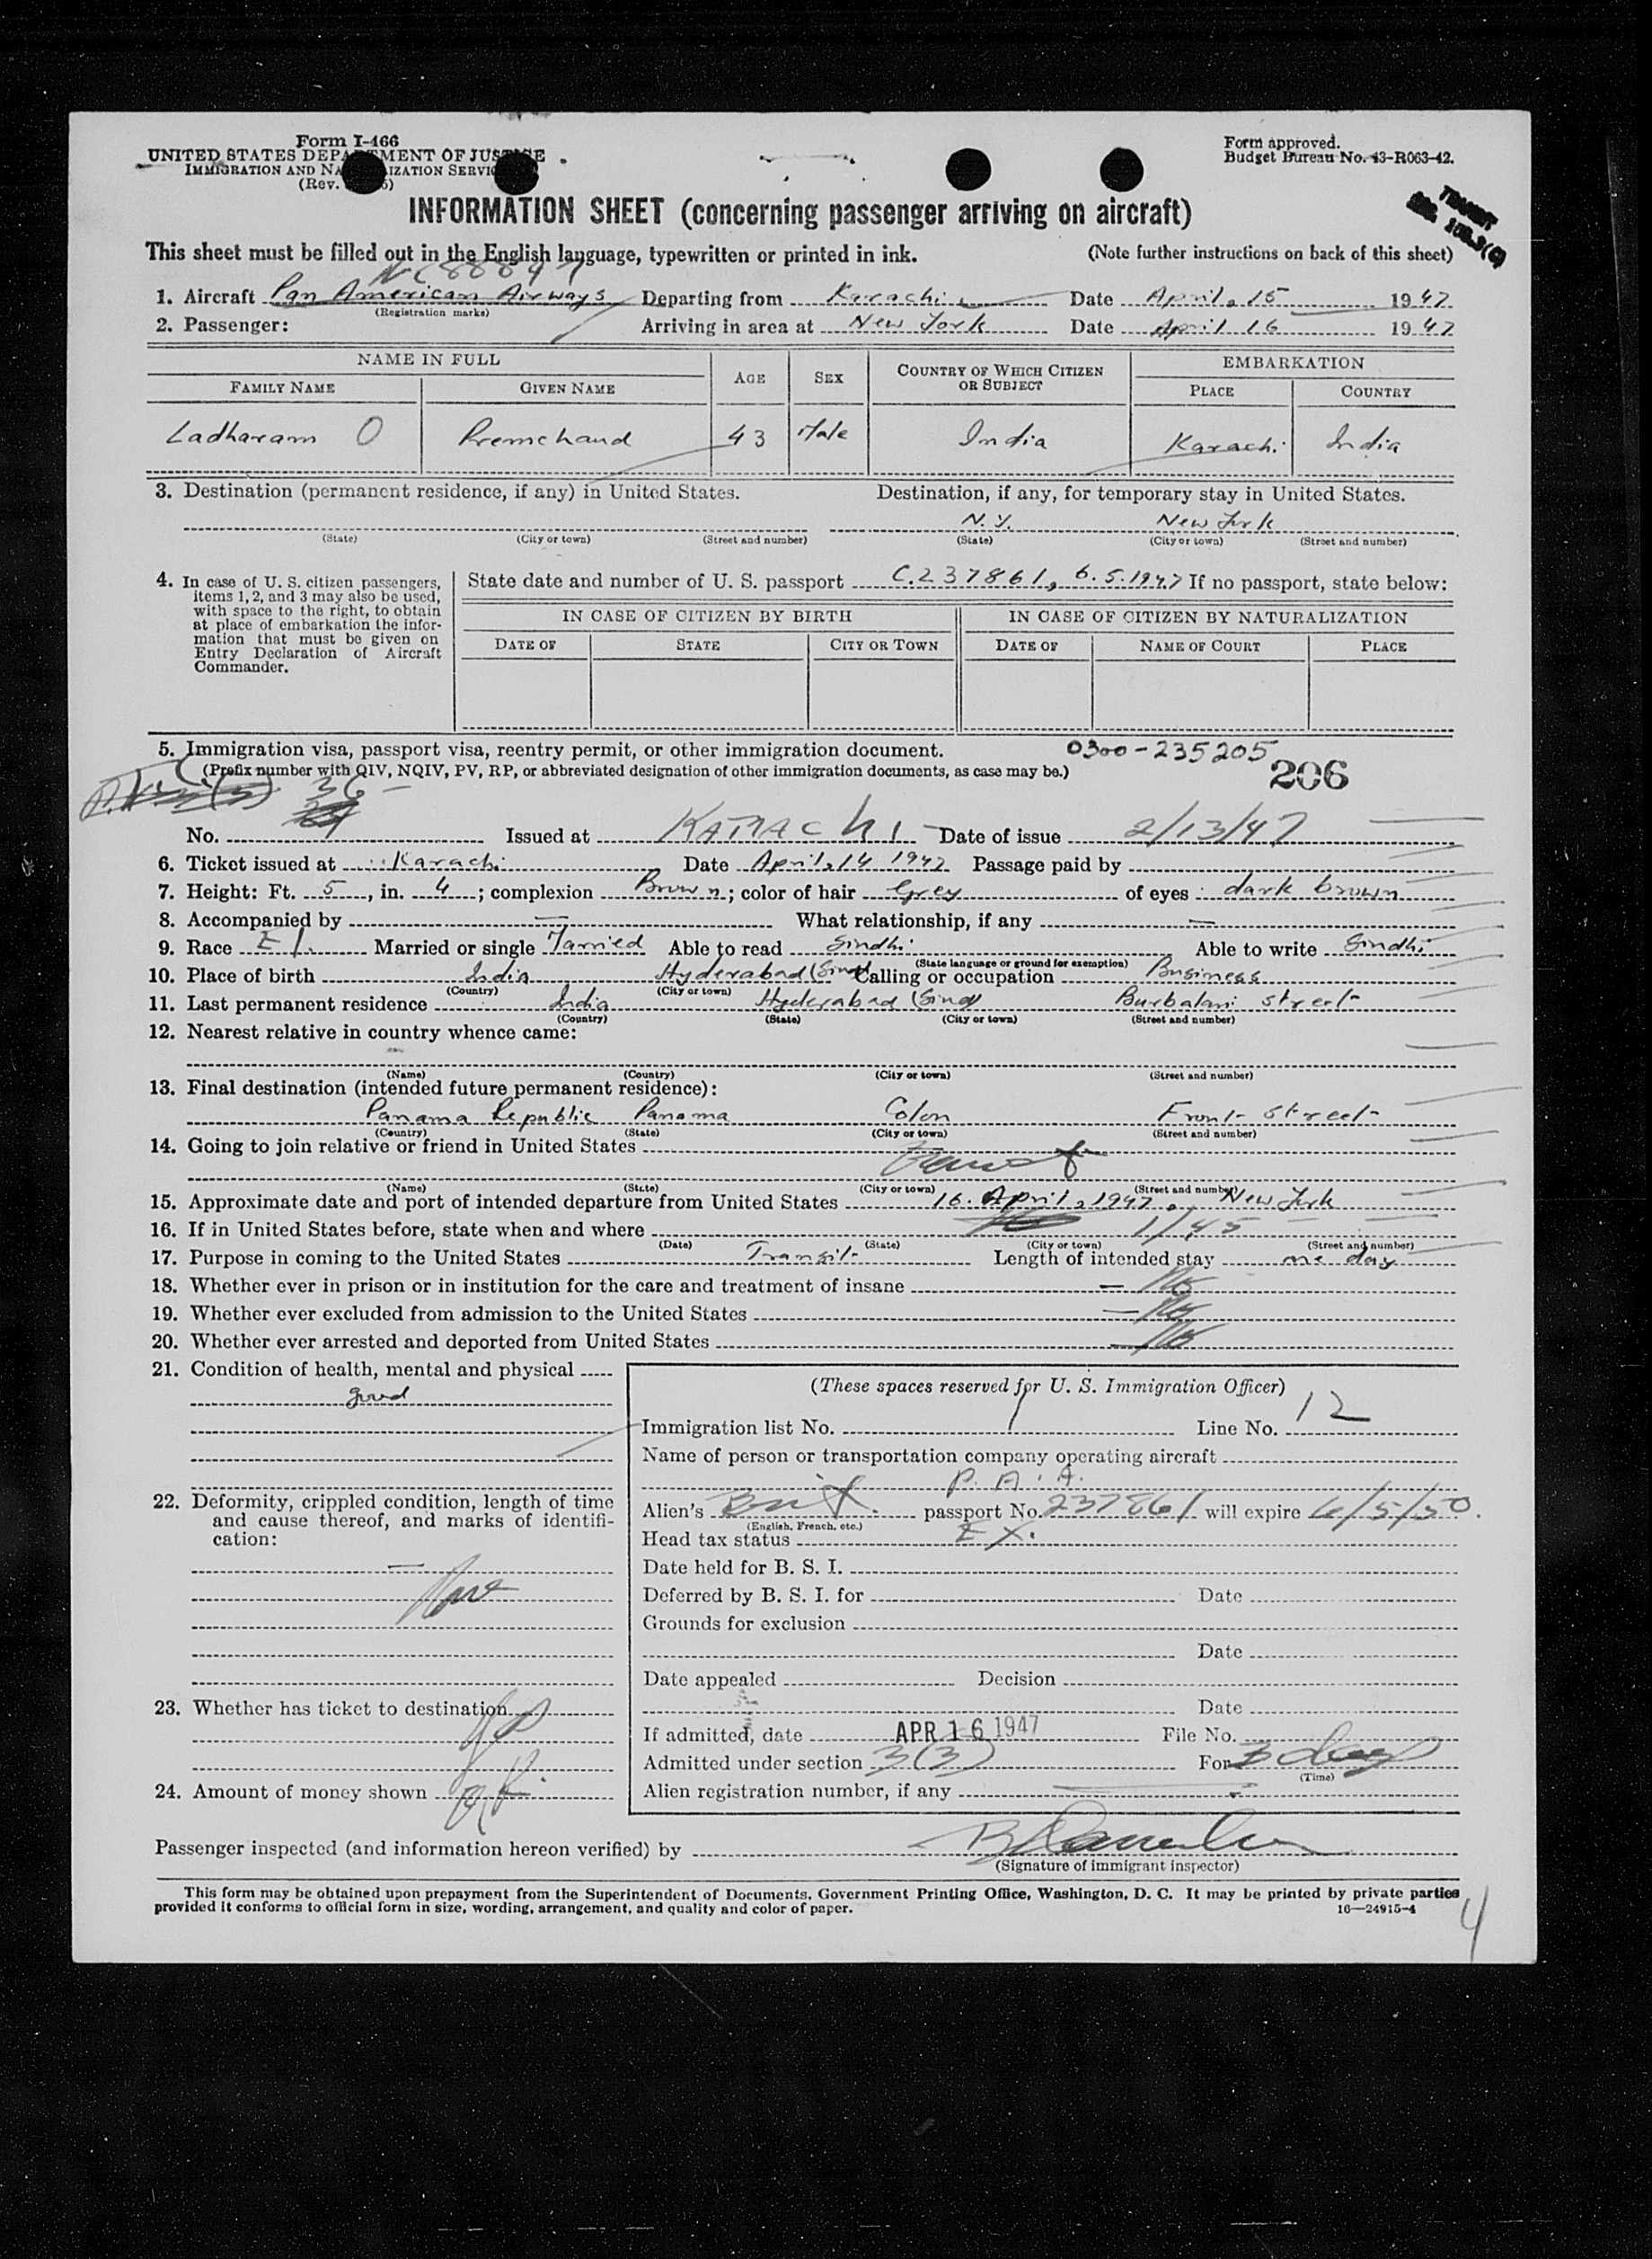 Form I-466
UNITED STATES DEPARTMENT OF JUSTICE
IMMIGRATION AND NATURALIZATION SERVICE
(Rev.
Form approved.
Budget Bureau No. 43-R063-42.
TRANSIT
INFORMATION SHEET (concerning passenger arriving on aircraft)
This sheet must be filled out in the English language, typewritten or printed in ink. (Note further instructions on back of this sheet)
1. Aircraft Pan American Airways Departing from Karachi Date April, 15 1947
(Registration marks)
2. Passenger: Arriving in area at New York Date April 16 1947
NAME IN FULL AGE SEX COUNTRY OF WHICH CITIZEN OR SUBJECT EMBARKATION
FAMILY NAME GIVEN NAME PLACE COUNTRY
Ladharam O Premchand 43 Male India Karachi India
3. Destination (permanent residence, if any) in United States. Destination, if any, for temporary stay in United States.
N.Y. New York
(State) (City or town) (Street and number) (State) (City or town) (Street and number)
4. In case of U. S. citizen passengers, items 1, 2, and 3 may also be used, with space to the right, to obtain at place of embarkation the information that must be given on Entry Declaration of Aircraft Commander.
State date and number of U. S. passport C.237861, 6.5.1947 If no passport, state below:
IN CASE OF CITIZEN BY BIRTH IN CASE OF CITIZEN BY NATURALIZATION
DATE OF STATE CITY OR TOWN DATE OF NAME OF COURT PLACE
5. Immigration visa, passport visa, reentry permit, or other immigration document. 0300-235205
(Prefix number with QIV, NQIV, PV, RP, or abbreviated designation of other immigration documents, as case may be.) 206
No. 36 Issued at KARACHI Date of issue 2/13/47
6. Ticket issued at Karachi Date April, 14 1947 Passage paid by
7. Height: Ft. 5, in. 4; complexion Brown; color of hair Grey of eyes dark brown
8. Accompanied by — What relationship, if any —
9. Race E I. Married or single Married Able to read Sindhi Able to write Sindhi
(State language or ground for exemption)
10. Place of birth India Hyderabad (Sind Calling or occupation Business
(Country) (City or town)
11. Last permanent residence India Hyderabad (Sind) Burbalani street
(Country) (State) (City or town) (Street and number)
12. Nearest relative in country whence came:
(Name) (Country) (City or town) (Street and number)
13. Final destination (intended future permanent residence):
Panama Republic Panama Colon Front street
(Country) (State) (City or town) (Street and number)
14. Going to join relative or friend in United States
(Name) (State) (City or town) (Street and number)
15. Approximate date and port of intended departure from United States 16. April, 1947, New York
16. If in United States before, state when and where 1/45
(Date) (State) (City or town) (Street and number)
17. Purpose in coming to the United States Transit Length of intended stay one day
18. Whether ever in prison or in institution for the care and treatment of insane — No
19. Whether ever excluded from admission to the United States — No
20. Whether ever arrested and deported from United States — No
21. Condition of health, mental and physical
good
22. Deformity, crippled condition, length of time and cause thereof, and marks of identification:
— None
23. Whether has ticket to destination
24. Amount of money shown
(These spaces reserved for U. S. Immigration Officer)
Immigration list No. 1 Line No. 12
Name of person or transportation company operating aircraft
P. A. A.
Alien's Brit. passport No. 237861 will expire 6/5/50.
(English, French, etc.)
Head tax status EX.
Date held for B. S. I.
Deferred by B. S. I. for Date
Grounds for exclusion
Date
Date appealed Decision
Date
If admitted, date APR 16 1947 File No.
Admitted under section 3(3) For 3 days
(Time)
Alien registration number, if any
Passenger inspected (and information hereon verified) by
(Signature of immigrant inspector)
This form may be obtained upon prepayment from the Superintendent of Documents, Government Printing Office, Washington, D. C. It may be printed by private parties
provided it conforms to official form in size, wording, arrangement, and quality and color of paper. 16—24915-4
4